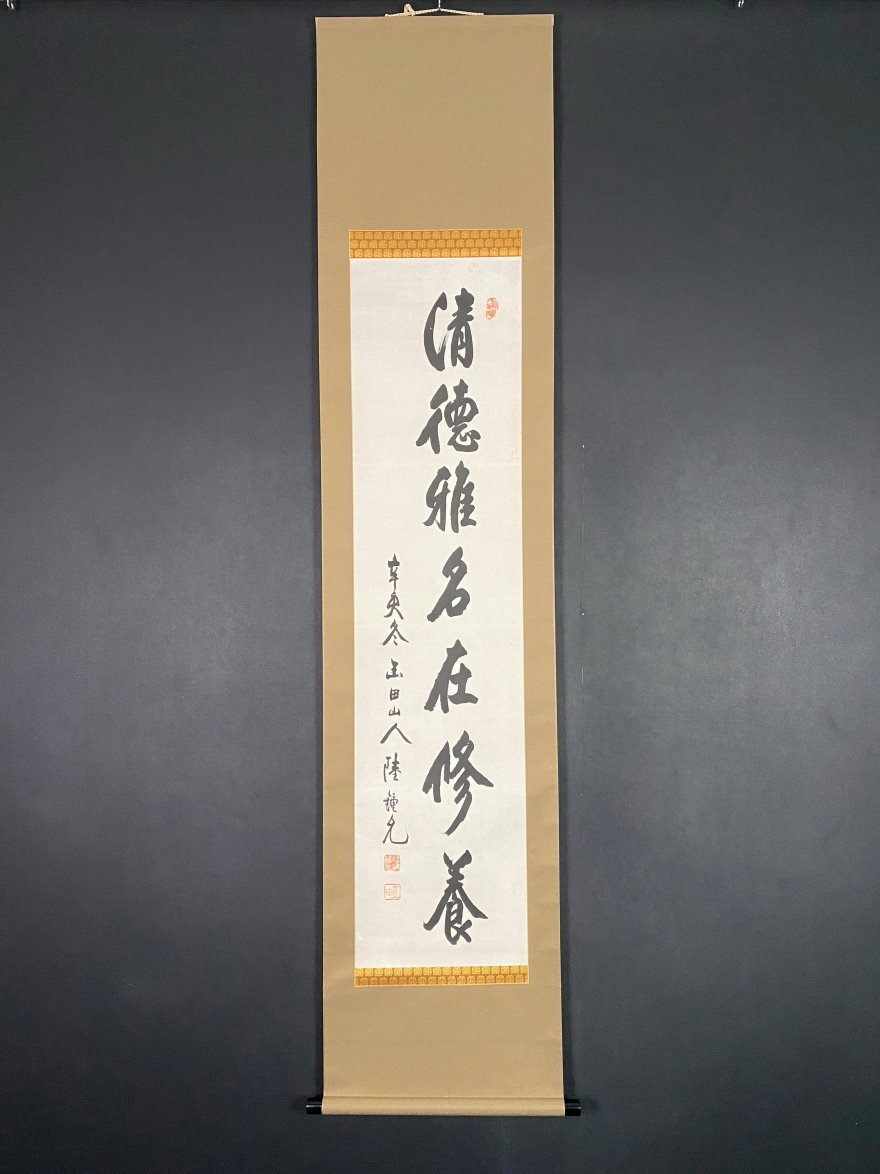 清德雅名在修養
辛亥冬 玉田山人 陸鍾允